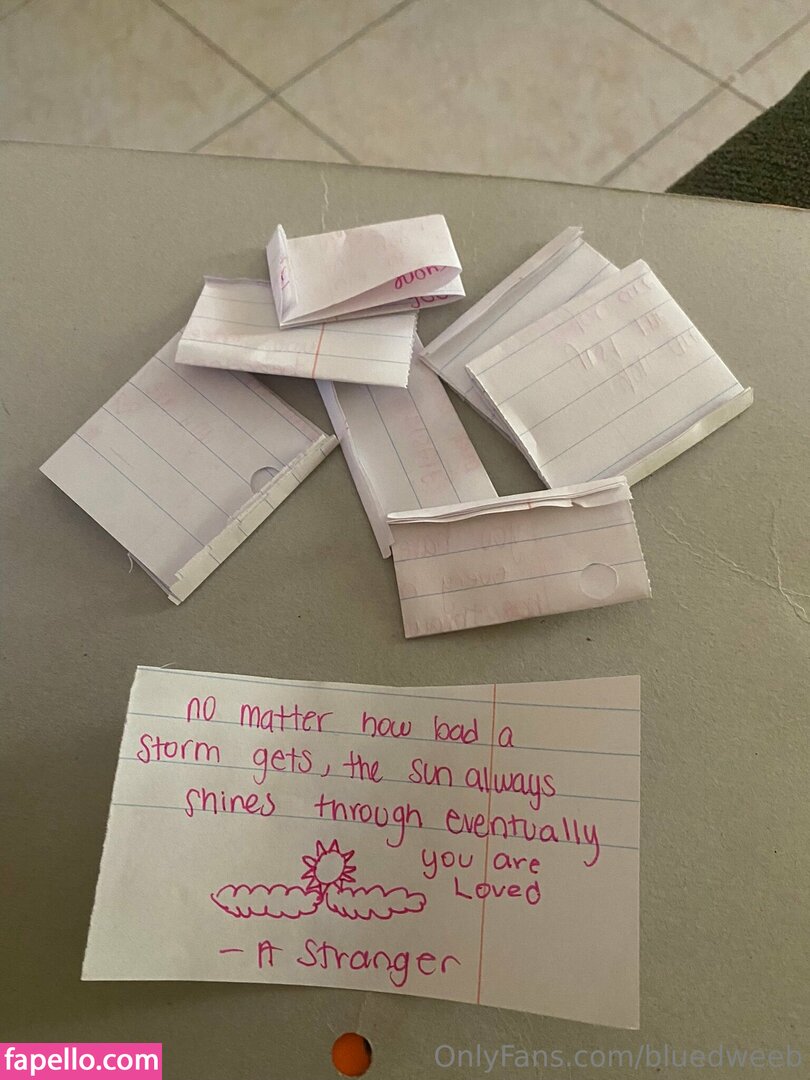 no matter how bad a
storm gets, the sun always
shines through eventually
you are
Loved
— A Stranger
fapello.com
OnlyFans.com/bluedweeb